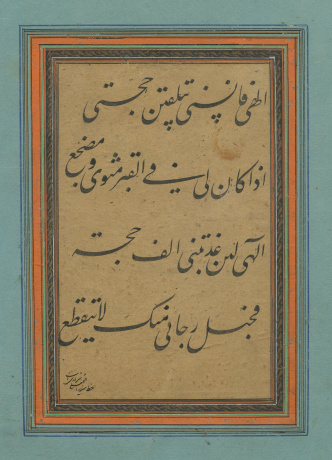 الهی فانسنی بتلقین حجتی
اذا کان لی فی القبر مثوی و مضجع
الهی لین عذبتنی الف حجته
فحبل رجائی منک لا یتقطع